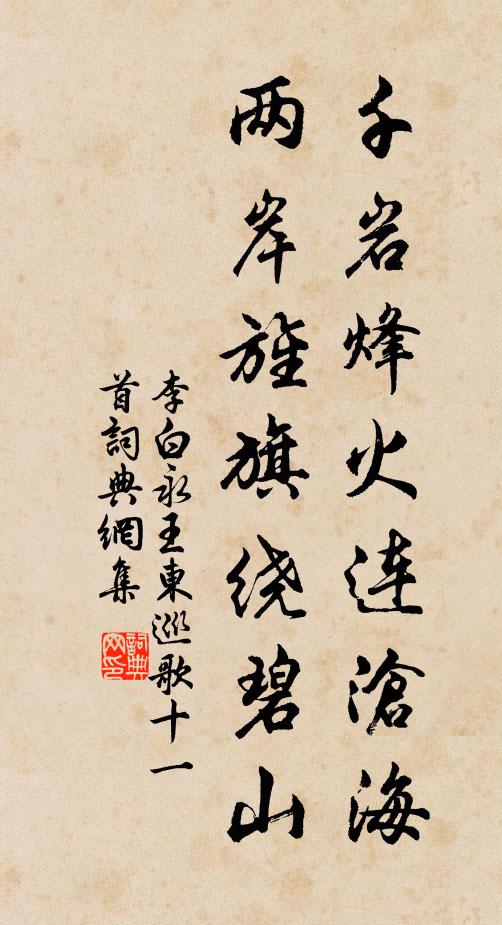 千岩烽火连滄海
两岸旌旗绕碧山
李白永王東巡歌十一
首詞典網集
詞典
网印